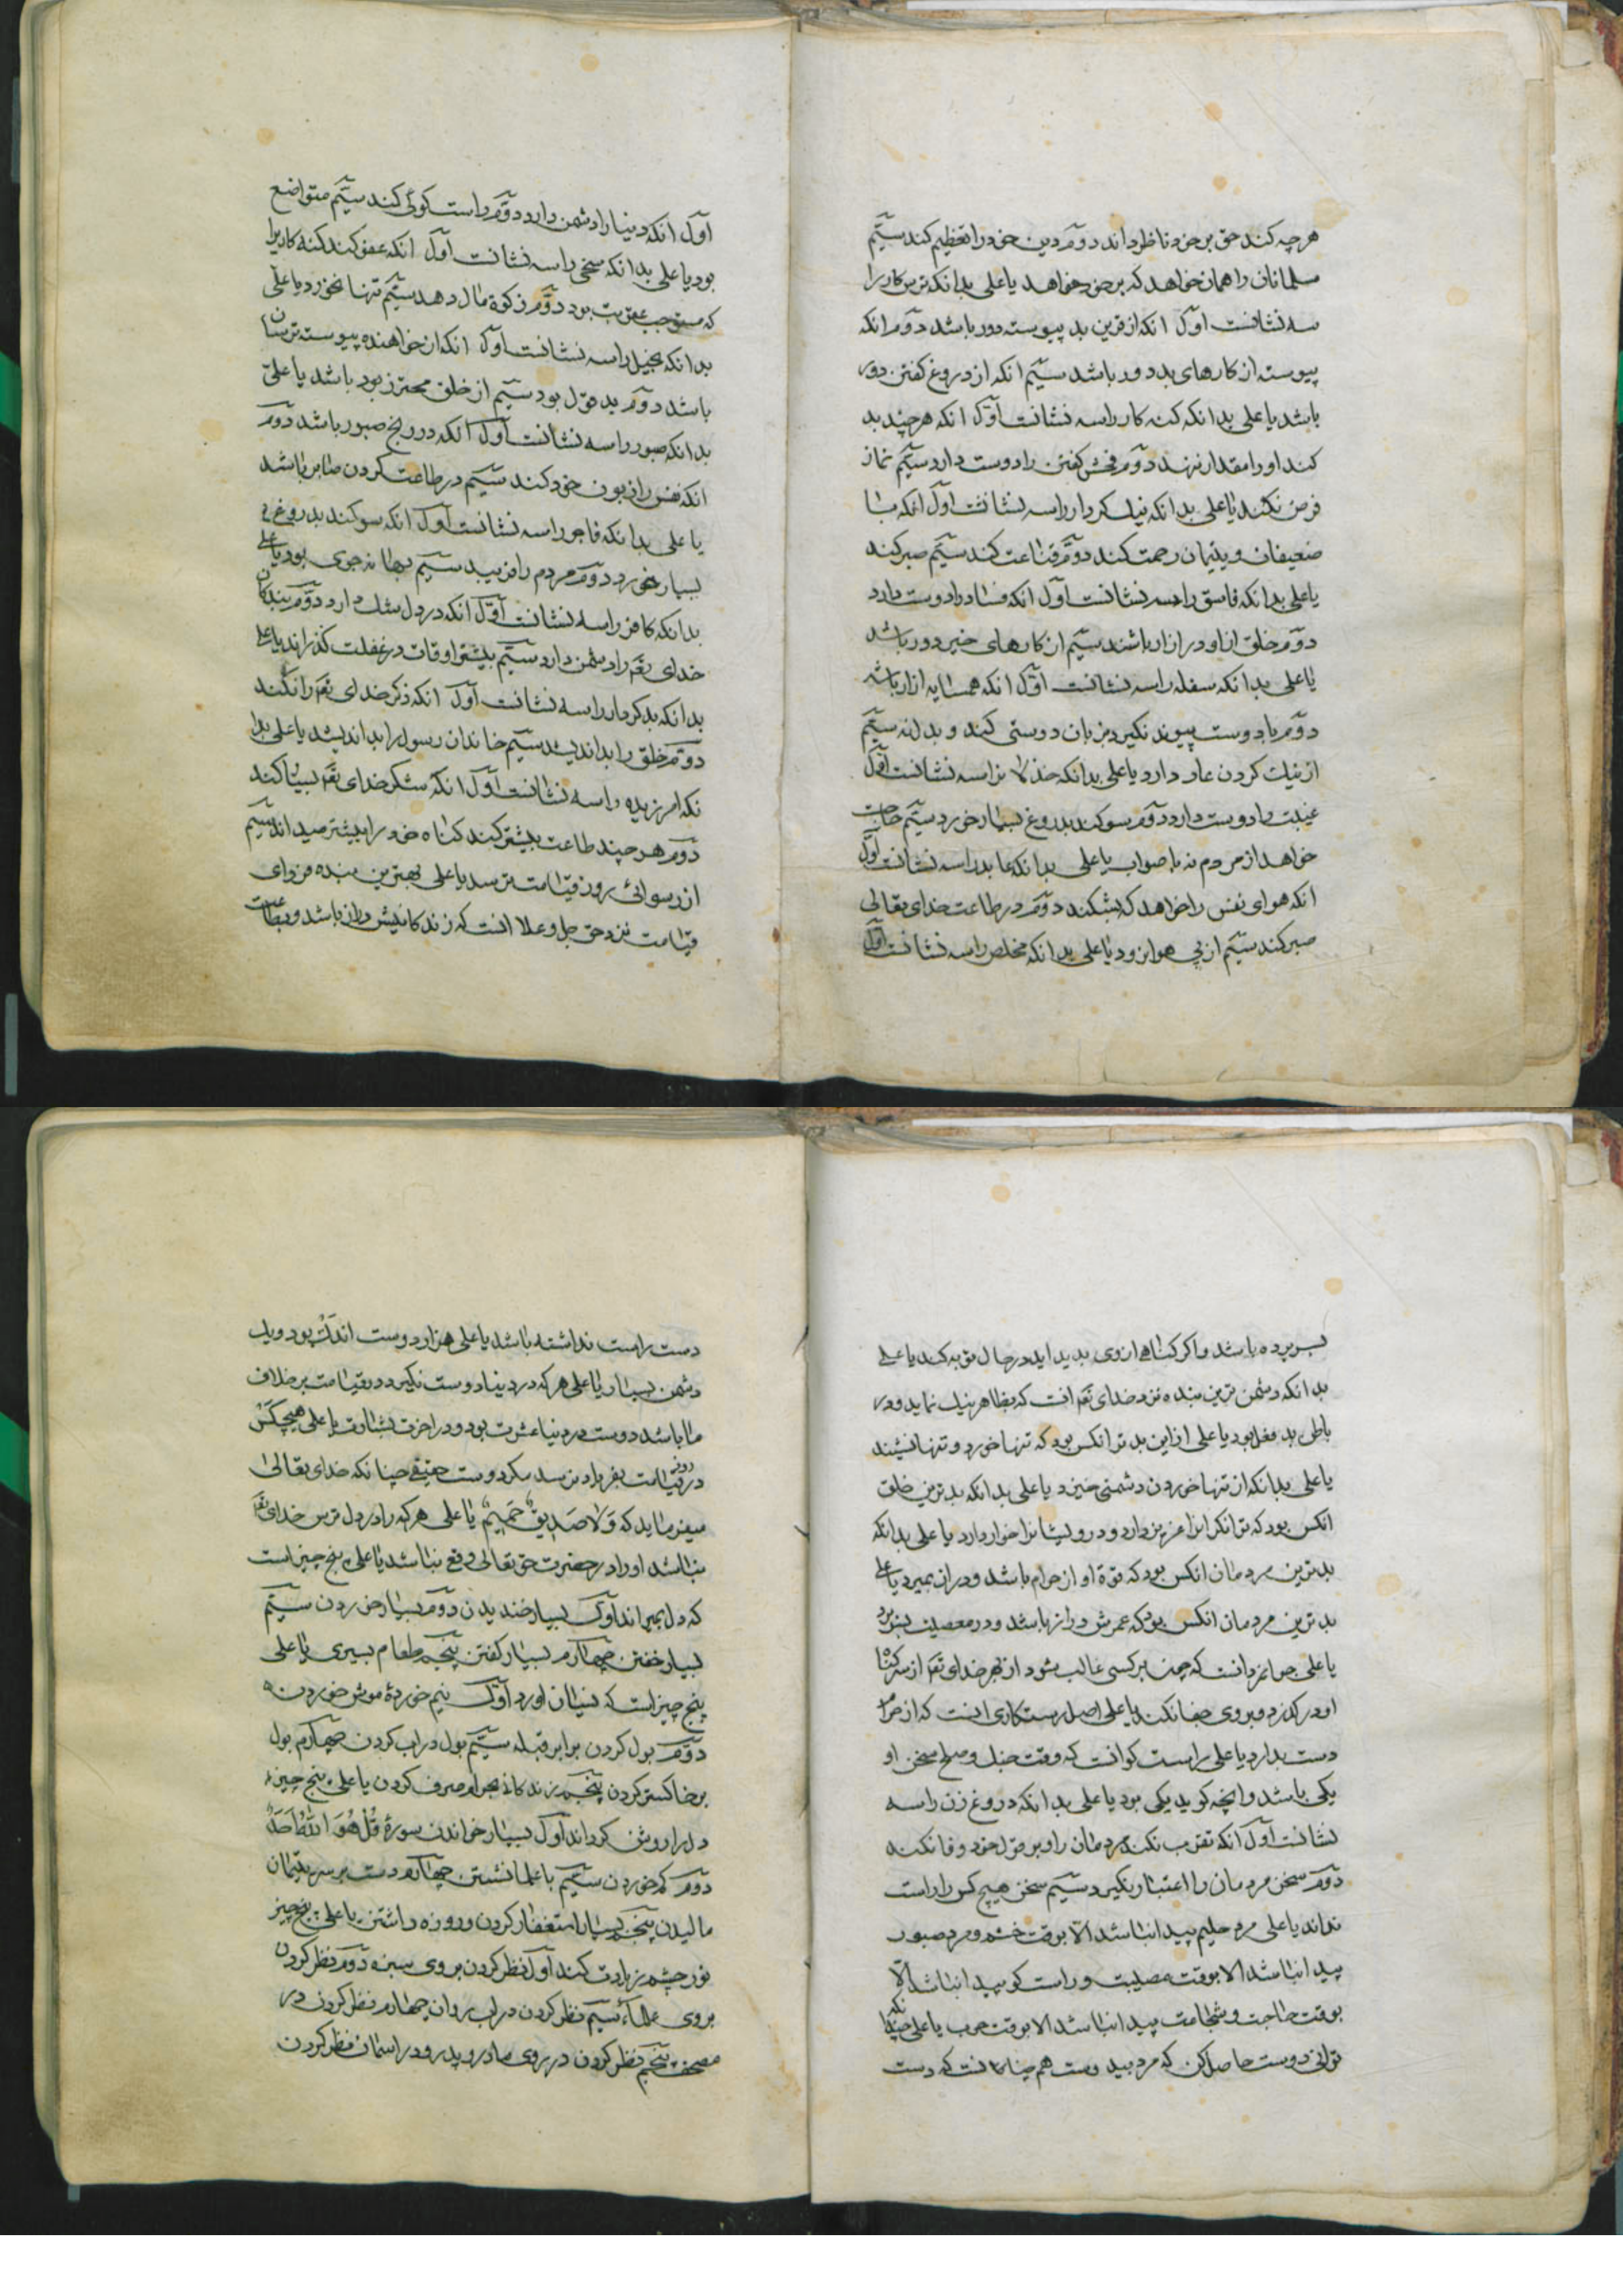 هرچه کند حق بر خود ناظر داند دوم دین خود را تعظیم کند سیّم
مسلمانان را همان خواهد که بر خود خواهد یا علی بدانکه ترس کار را
سه نشانست اوّل انکه از قرین بد پیوسته دور باشد دوم انکه
پیوسته از کارهای بد دور باشد سیّم انکه از دروغ کفتن دور
باشد یا علی بدانکه کنه کار را سه نشانست اوّل انکه هرچند بد
کند او را مقدار ننهد دوم فحش کفتن را دوست دارد سیّم نماز
فرض نکند یا علی بدانکه نیک کردار را سه نشانست اول انکه با
ضعیفان و یتیمان رحمت کند دوّم قناعت کند سیّم صبر کند
یا علی بدانکه فاسق را سه نشانست اول انکه فساد را دوست دارد
دوم خلق از او در ازار باشند سیّم از کارهای خیر دور باشد
یا علی بدانکه سفله را سه نشانست اوّل انکه همسایه ازار باشد
دوم با دوست پیوند نکیرد بزبان دوستی کند و بدل نه سیّم
از نیکی کردن عار دارد یا علی بدانکه را سه نشانست اوّل
غیبت را دوست دارد دوم سوکند بدروغ بسیار خورد سیّم حاجت
خواهد از مردم نه با صواب یا علی بدانکه عابد را سه نشانست اوّل
انکه هوای نفس را خواهد که بشکند دوم در طاعت خدای تعالی
صبر کند سیّم از پی هوا نرود یا علی بدانکه مخلص را سه نشانست اوّل
اوّل انکه دنیا را دشمن دارد دوّم راست کوئی کند سیّم متواضع
بود یا علی بدانکه سخی را سه نشانست اوّل انکه عفو کند کنه کاریرا
که مستوجب عقوبت بود دوّم زکوة مال دهد سیّم تنها نخورد یا علی
بدانکه بخیل را سه نشانست اوّل انکه از خواهنده پیوسته ترسان
باشد دوم بد قول بود سیّم از خلق محترز بود باشد یا علی
بدانکه صبور را سه نشانست اوّل انکه در رنج صبور باشد دوم
انکه نفس را زبون خود کند سیّم در طاعت کردن صابر باشد
یا علی بدانکه فاجر را سه نشانست اوّل انکه سوکند بدروغ
بسیار خورد دوم مردم را فریبد سیّم بهانه جوی بود یا علی
بدانکه کافر را سه نشانست اوّل انکه در دل شک دارد دوّم بندکان
خدای تعه را دشمن دارد سیّم بیشتر اوقات در غفلت کذراند یا علی
بدانکه بدکردار را سه نشانست اول انکه ذکر خدای تعه را نکند
دوّم خلق را بد اندیشد سیّم خاندان رسول را بد اندیشد یا علی بدا
نکه امرزیده را سه نشانست اوّل انکه شکر خدای تعه بسیار کند
دوم هرچند طاعت بیشتر کند کناه خود را بیشتر میداند سیّم
از رسوائی روز قیامت ترسد یا علی بهترین بنده فردای
قیامت نزد حق جل و علا انست که زندکانیش دراز باشد و بطاعت
بسر برده باشد و اکر کناهی از وی پدید اید در حال توبه کند یا علی
بدانکه دشمن ترین بنده نزد خدای تعه انست که بظاهر نیک نماید و در
باطن بد فعل بود یا علی از این بدتر انکس بود که تنها خورد و تنها نشیند
یا علی بدانکه از تنها خوردن دشمنی خیزد یا علی بدانکه بدترین خلق
انکس بود که توانکرانرا عزیز دارد و درویشانرا خوار دارد یا علی بدانکه
بدترین مردمان انکس بود که قوة او از حرام باشد و دران بمیرد یا علی
بدترین مردمان انکس بود که عمرش دراز باشد و در معصیت بسر برد
یا علی جوانمرد انست که چون بر کسی غالب شود از بهر خدای تعه از سر کناه
او درکذرد و بروی جفا نکند یا علی اصل رستکاری انست که از حرام
دست بدارد یا علی راست کو انست که وقت جنک و صلح سخن او
یکی باشد و انچه کوید یکی بود یا علی بدانکه دروغ زن را سه
نشانست اوّل انکه تقرب نکند مردمان را و بر قول خود وفا نکند
دوم سخن مردمان را اعتبار نکیرد سیّم سخن هیچ کس را راست
نداند یا علی مرد حلیم پیدا نباشد الّا بوقت خشم و مرد صبور
پیدا نباشد الا بوقت مصیبت و راست کو پیدا نباشد الّا
بوقت حاجت و شجاعت پیدا نباشد الا بوقت حرب یا علی چندانکه
توانی دوست حاصل کن که مرد بیدوست هم چنانست که دست
دست راست نداشته باشد یا علی هزار دوست اندک بود و یک
دشمن بسیار یا علی هر که در دنیا دوست نکیرد در قیامت بر خلاف
ما باشد دوست در دنیا عشرت بود و در اخرت بشارت یا علی هیچکس
در روز قیامت بفریاد نرسد مکر دوست حقیقی چنانکه خدای تعالی
میفرماید که وَلا صَدیقٍ حَمیمٍ یا علی هر که را در دل ترس خدای تعه
نباشد او را در حضرت حق تعالی وقع نباشد یا علی پنج چیز است
که دل بمیراند اوّل بسیار خندیدن دوّم بسیار خوردن سیّم
بسیار خفتن چهارم بسیار کفتن پنجم طعام بسیری یا علی
پنج چیز است که نسیان اورد اوّل نیم خوردهٔ موش خوردن
دوّم بول کردن برابر قبله سیّم بول در اب کردن چهارم بول
بر خاکستر کردن پنجم زندکانی بحرام صرف کردن یا علی پنج چیز
دلرا روشن کرداند اوّل بسیار خواندن سورهٔ قُلْ هُوَ اللّهُ اَحَدٌ
دوّم کم خوردن سیّم با علما نشستن چهارم دست بر سر یتیمان
مالیدن پنجم بسیار استغفار کردن و روزه داشتن یا علی پنج چیز
نور چشم زیادت کند اوّل نظر کردن بروی سبزه دوم نظر کردن
بروی علماء سیّم نظر کردن در اب روان چهارم نظر کردن در
مصحف پنجم نظر کردن در روی مادر و پدر و در اسمان نظر کردن